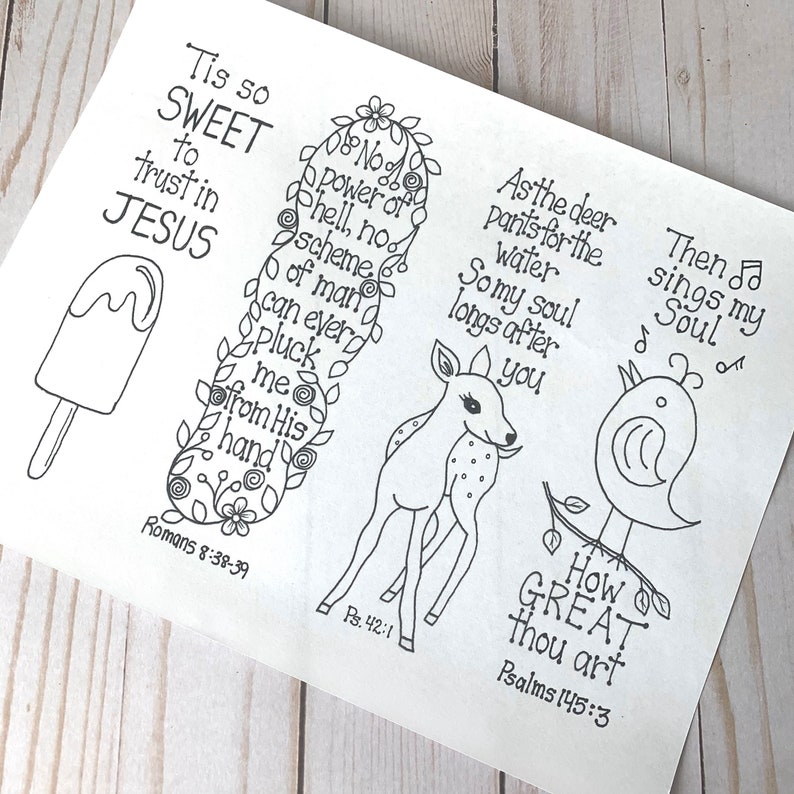 Tis so
SWEET
to
trust in
JESUS
No
power of
hell, no
scheme
of man
can ever
pluck
me
from His
hand
Romans 8:38-39
As the deer
pants for the
water
So my soul
longs after
you
Ps. 42:1
Then
sings my
Soul
How
GREAT
thou art
Psalms 145:3